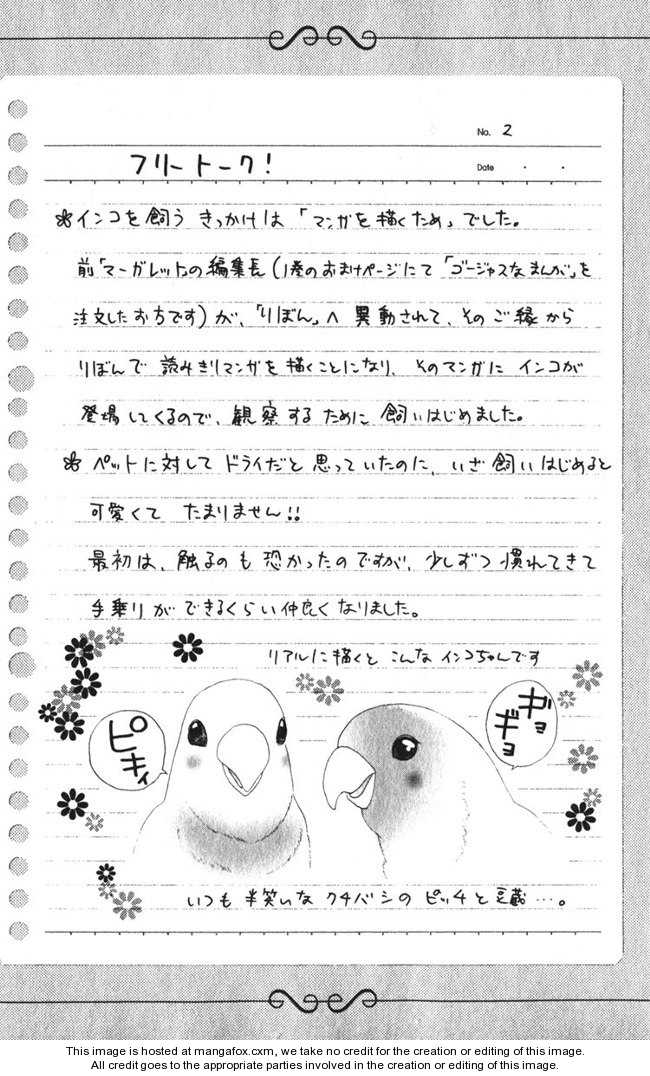 No. 2
フリートーク!
Date ・ ・
✽インコを飼う きっかけは 「マンガを描くため」でした。
前「マーガレット」の編集長(1巻のおまけページにて「ゴージャスなまんが」を
注文したお方です)が、「りぼん」へ 異動されて、そのご縁から
りぼんで 読みきりマンガを描くことになり、そのマンガに インコが
登場してくるので、観察するために 飼いはじめました。
✽ ペットに対して ドライだと思っていたのに、いざ飼いはじめると
可愛くて たまりません!!
最初は、触るのも恐かったのですが、少しずつ慣れてきて
手乗りができるくらい仲良くなりました。
リアルに描くと こんなインコちゃんです
ピキィ
ギョギョ
いつも半笑いな クチバシの ピッチと豆蔵…。
This image is hosted at mangafox.cxm, we take no credit for the creation or editing of this image.
All credit goes to the appropriate parties involved in the creation or editing of this image.